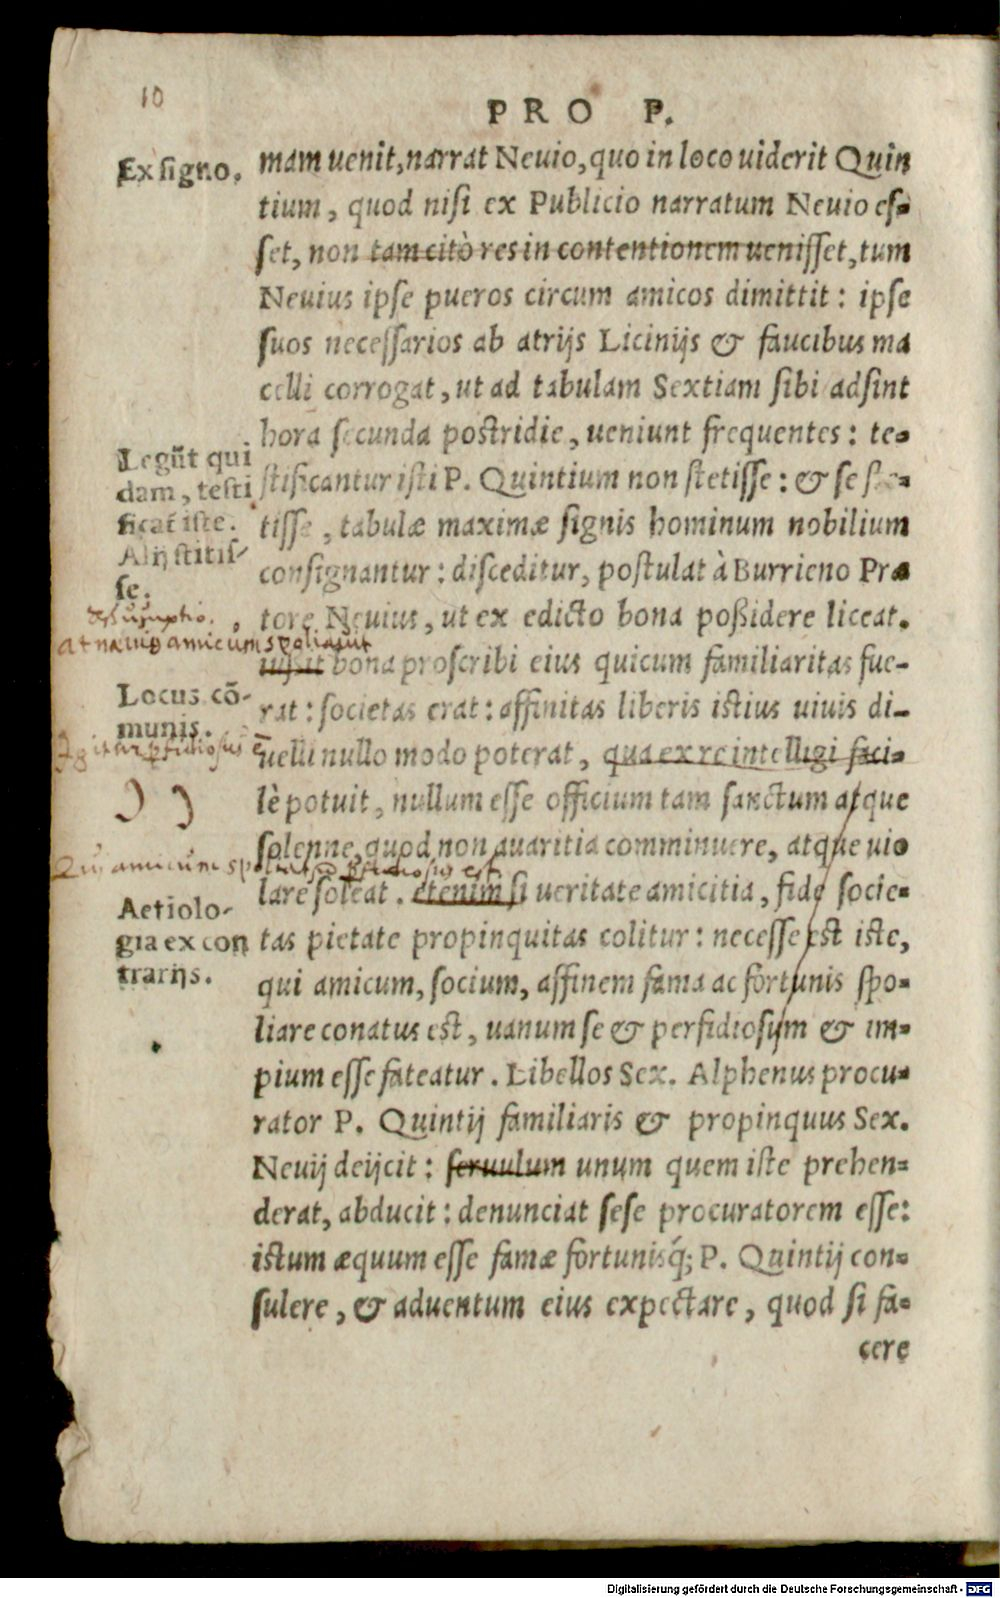 10
PRO P.
Ex signo.
mam uenit, narrat Nevio, quo in loco uiderit Quin
tium, quod nisi ex Publicio narratum Nevio es-
set, non tam citò res in contentionem uenisset, tum
Nevius ipse pueros circum amicos dimittit: ipse
suos necessarios ab atrijs Licinijs & faucibus ma
celli corrogat, ut ad tabulam Sextiam sibi adsint
hora secunda postridie, ueniunt frequentes: te-
stificantur isti P. Quintium non stetisse: & se ste-
tisse, tabulæ maximæ signis hominum nobilium
consignantur: disceditur, postulat à Burrieno Præ
tore Nevius, ut ex edicto bona poßidere liceat.
iussit bona proscribi eius quicum familiaritas fue-
rat: societas erat: affinitas liberis istius uiuis di-
uelli nullo modo poterat, qua ex re intelligi faci-
lè potuit, nullum esse officium tam sanctum atque
solenne, quod non auaritia comminuere, atque uio
lare soleat. etenim si ueritate amicitia, fide socie-
tas pietate propinquitas colitur: necesse est iste,
qui amicum, socium, affinem fama ac fortunis spo-
liare conatus est, uanum se & perfidiosum & im-
pium esse fateatur. Libellos Sex. Alphenus procu-
rator P. Quintij familiaris & propinquus Sex.
Nevij deijcit: seruulum unum quem iste prehen-
derat, abducit: denunciat sese procuratorem esse:
istum æquum esse famæ fortunisq́; P. Quintij con-
sulere, & aduentum eius expectare, quod si fa-
cere
Legũt qui
dam, testi
ficat iste.
Alij stitis-
se.
assumptio.
at navius amicum spoliavit
Locus cõ-
munis.
Igitur perfidiosus ē
Qui amicum spoliat perfidiosus est
Aetiolo-
gia ex con
trarijs.
Digitalisierung gefördert durch die Deutsche Forschungsgemeinschaft - DFG